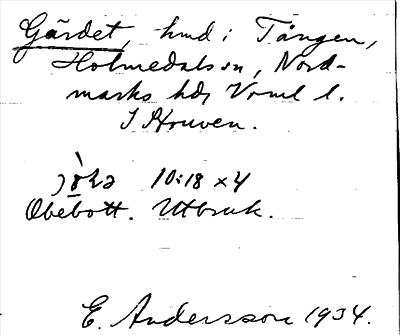 Gärdet, hmd i Tången,
Holmedals sn, Nord-
marks hd, Vrml l.
10:18 x 4
Obebott. Utbruk.
E. Andersson 1934.